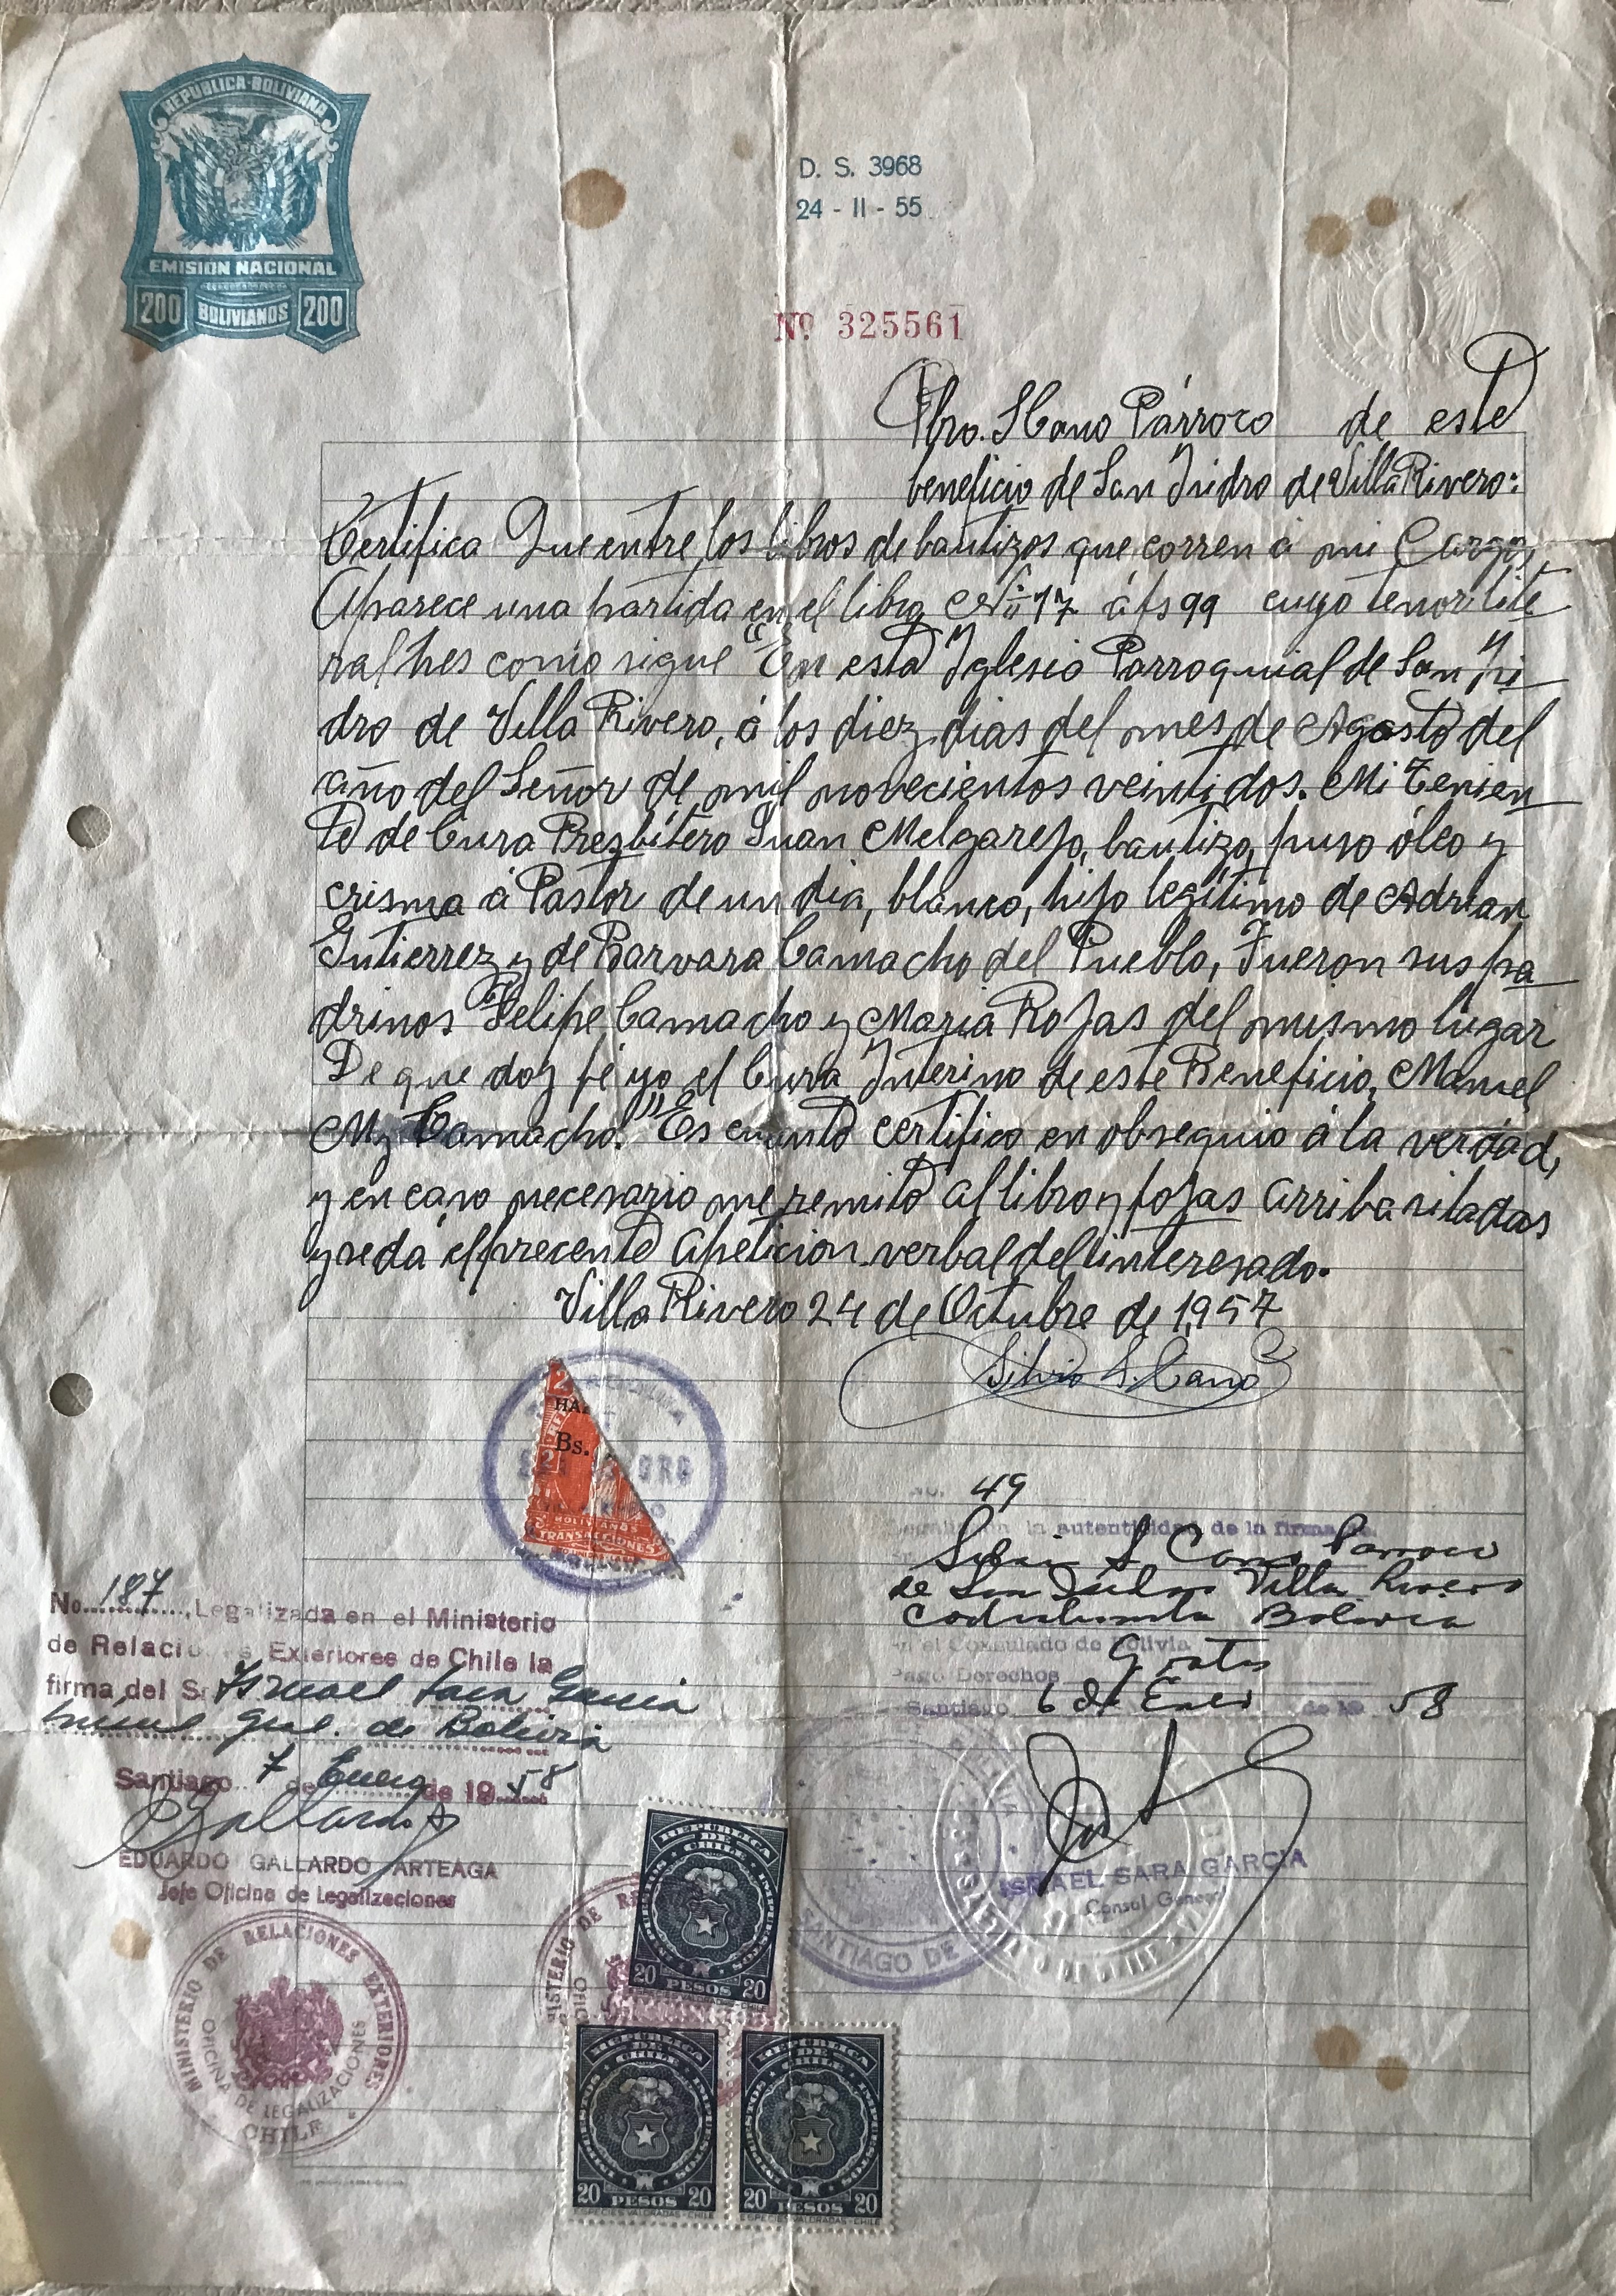 REPÚBLICA BOLIVIANA
EMISION NACIONAL
200 BOLIVIANOS 200
D. S. 3968
24 - II - 55
Nº 325561
Pbro. S Cano Párroco de este
beneficio de San Isidro de Villa Rivero:
Certifica Que entre los libros de bautizos que corren á mi Cargo,
Aparece una partida en el libro Nº 17 á fs 99 cuyo tenor lite
ral hes como sigue "En esta Iglesia Parroquial de San Isi
dro de Villa Rivero, á los diez dias del mes de Agosto del
año del Señor de mil novecientos veintidos. Mi Tenien
te de Cura Presbítero Juan Melgarejo, bautizo, puso óleo y
crisma á Pastor de un dia, blanco, hijo legítimo de Adrian
Gutierrez y de Barvara Camacho del Pueblo, Fueron sus pa
drinos Felipe Camacho y Maria Rojas del mismo lugar
De que doy fé yo el Cura Interino de este Beneficio, Manuel
M. Camacho." Es cuanto certifico en obsequio á la verdad,
y en caso necesario me remito al libro y fojas arriba sitadas
y se dá el precente apeticion verbal del interesado.
Villa Rivero 24 de Octubre de 1,957
Silvio S. Cano
2
HA
Bs.
2
BOLIVIANOS
TRANSACCIONES
No. 49
Legalizada la autenticidad de la firma de
Silvio S Cano Parroco
de San Isidro Villa Rivero
Cochabamba Bolivia
en el Consulado de Bolivia
Pago Derechos Gratis
Santiago 6 de Enero de 19 58
ISRAEL SARA GARCIA
Consul General
SANTIAGO DE
No. 187, Legalizada en el Ministerio
de Relaciones Exteriores de Chile la
firma del Sr. Garcia
Gral. de Bolivia
Santiago 7 de Enero de 19 58
Gallardo
EDUARDO GALLARDO ARTEAGA
Jefe Oficina de Legalizaciones
MINISTERIO DE RELACIONES EXTERIORES
OFICINA DE LEGALIZACIONES
CHILE
REPUBLICA DE CHILE
IMPUESTOS
20 PESOS 20
REPUBLICA DE CHILE
IMPUESTOS
20 PESOS 20
ESPECIES VALORADAS-CHILE
REPUBLICA DE CHILE
IMPUESTOS
20 PESOS 20
ESPECIES VALORADAS-CHILE